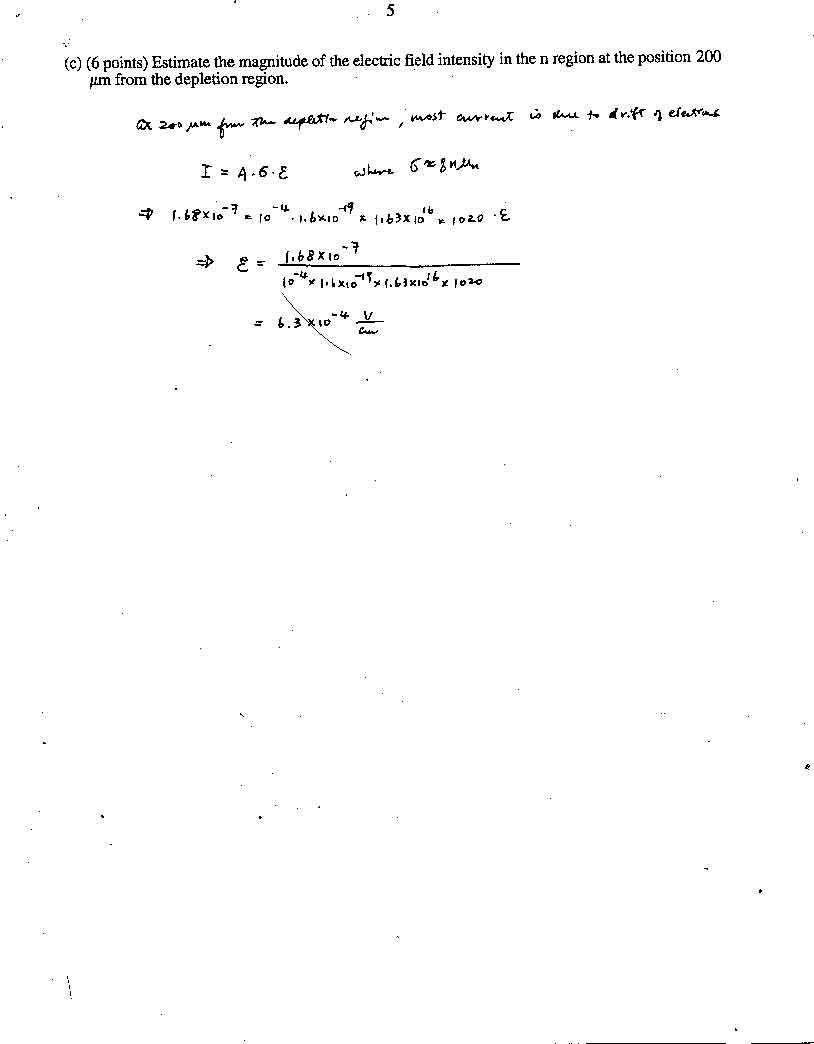 5
(c) (6 points) Estimate the magnitude of the electric field intensity in the n region at the position 200
μm from the depletion region.
At 200 μm from the depletion region, most current is due to drift of electrons
I = A·σ·Ɛ where σ ≈ qnμn
⇒ 1.68×10^-7 = 10^-4 · 1.6×10^-19 × 1.63×10^16 × 1020 · Ɛ
⇒ Ɛ = 1.68×10^-7 / 10^-4 × 1.6×10^-19 × 1.63×10^16 × 1020
= 6.3×10^-4 V/cm